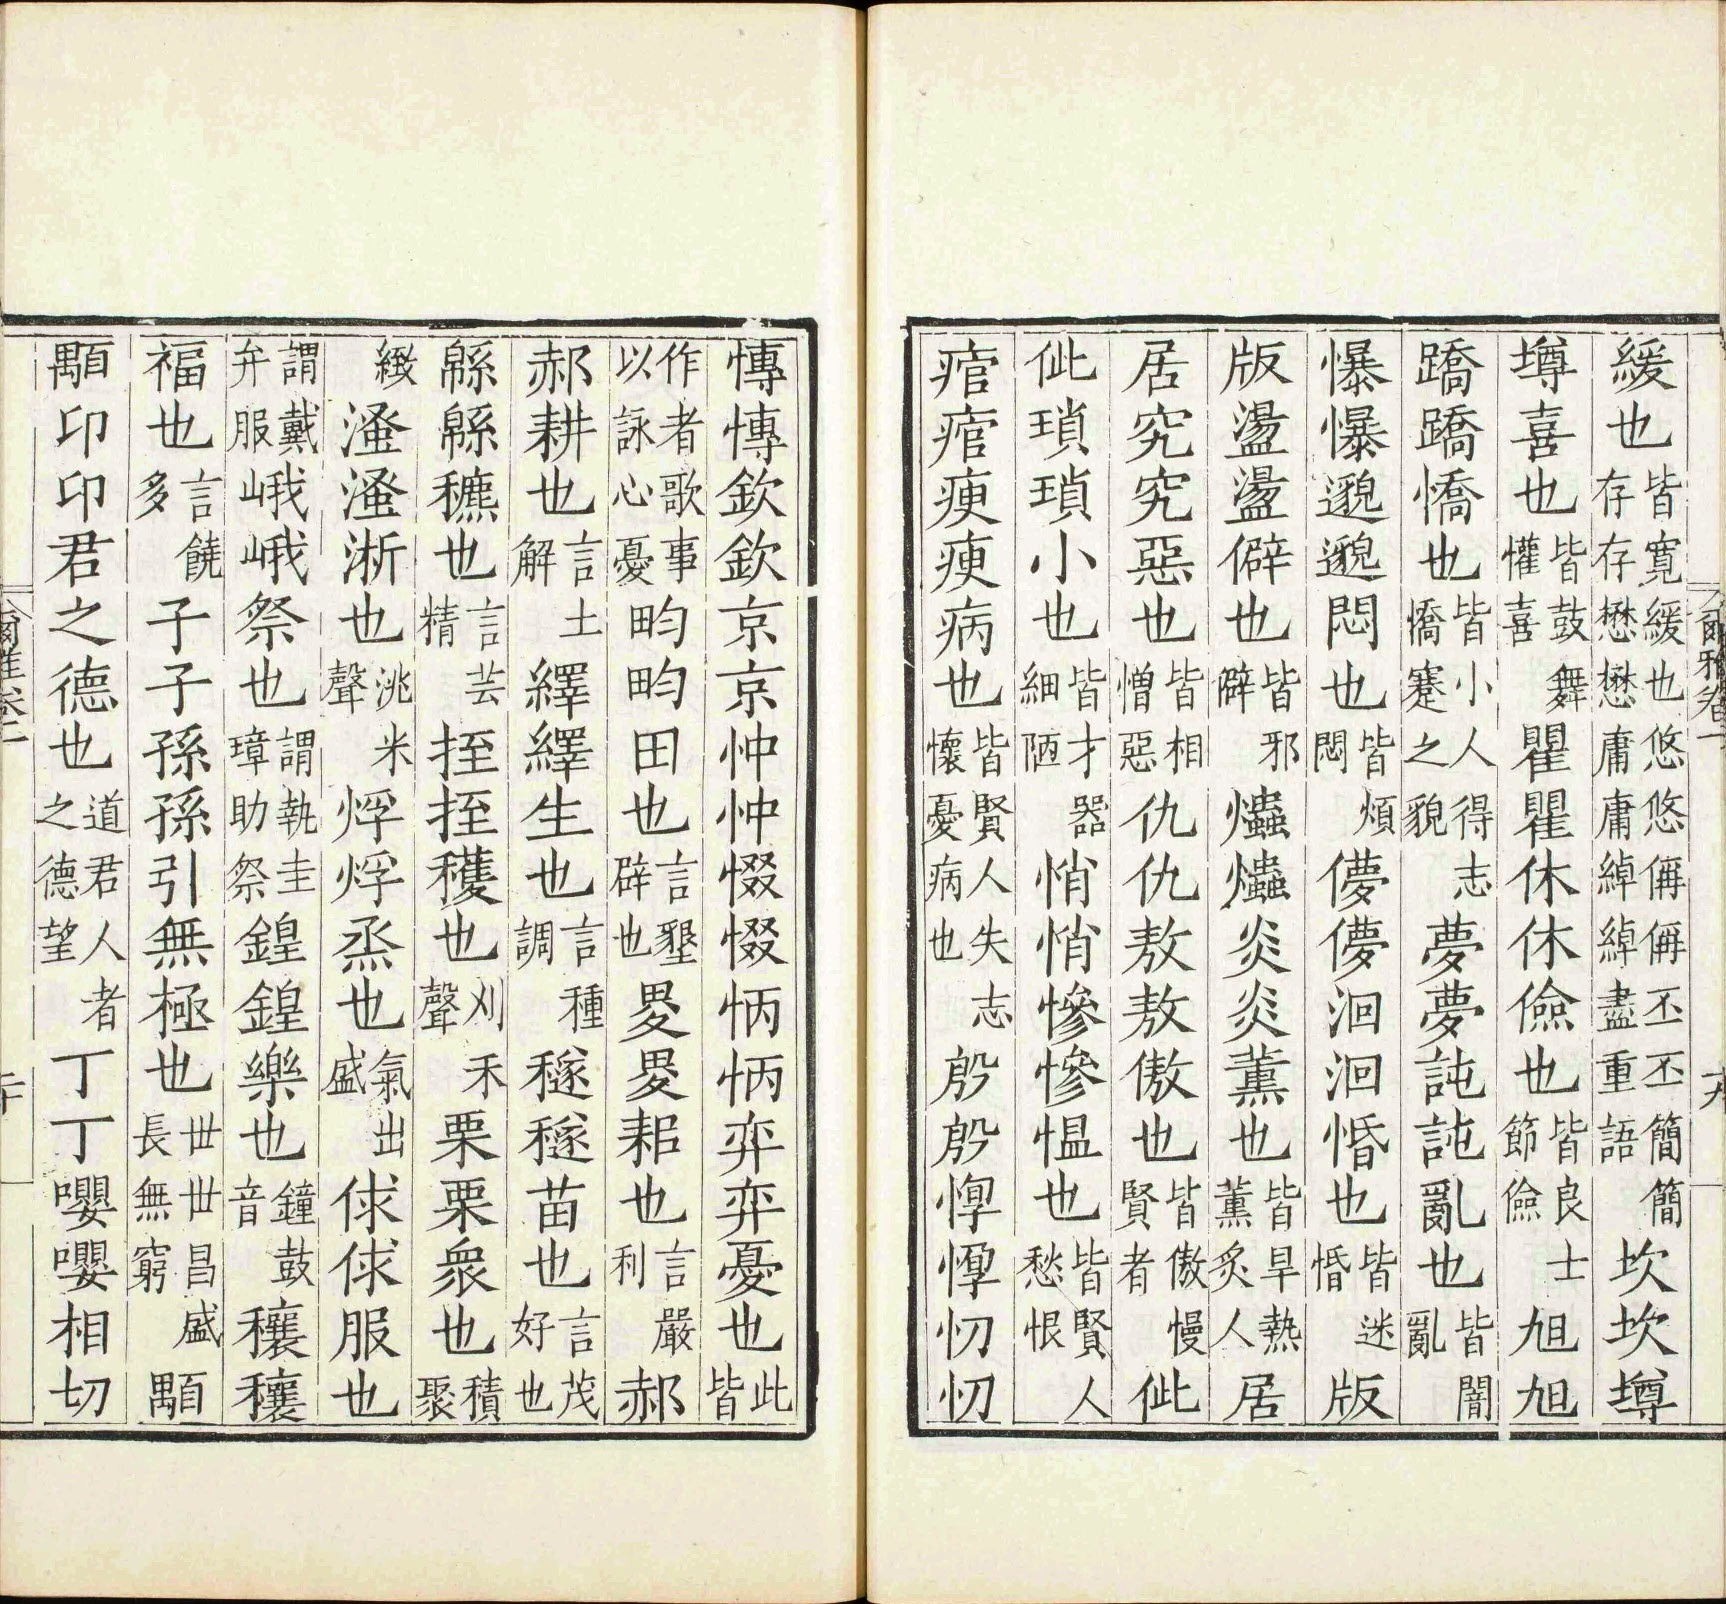 爾雅卷一 十九
緩也皆寬緩也悠悠偁偁丕丕簡簡存存懋懋庸庸綽綽盡重語坎坎墫
墫喜也皆鼓舞懽喜瞿瞿休休儉也皆良士節儉旭旭
蹻蹻憍也皆小人得志憍蹇之貌夢夢訰訰亂也皆闇亂
爆爆邈邈悶也皆煩悶儚儚洄洄惛也皆迷惛版
版盪盪僻也皆邪僻爞爞炎炎薰也皆旱熱薰炙人居
居究究惡也皆相憎惡仇仇敖敖傲也皆傲慢賢者佌
佌瑣瑣小也皆才器細陋悄悄慘慘慍也皆賢人愁恨
痯痯瘐瘐病也皆賢人失志懷憂病也殷殷惸惸忉忉
慱慱欽欽京京忡忡惙惙怲怲弈弈憂也此皆
作者歌事以詠心憂畇畇田也言墾辟也畟畟耜也言嚴利郝
郝耕也言土解繹繹生也言種調穟穟苗也言茂好也
緜緜穮也言芸精挃挃穫也刈禾聲栗栗眾也積聚
緻溞溞淅也洮米聲烰烰烝也氣出盛俅俅服也
謂戴弁服峨峨祭也謂執圭璋助祭鍠鍠樂也鐘鼓音穰穰
福也言饒多子子孫孫引無極也世世昌盛長無窮顒
顒卬卬君之德也道君人者之德望丁丁嚶嚶相切
爾雅卷一 二十